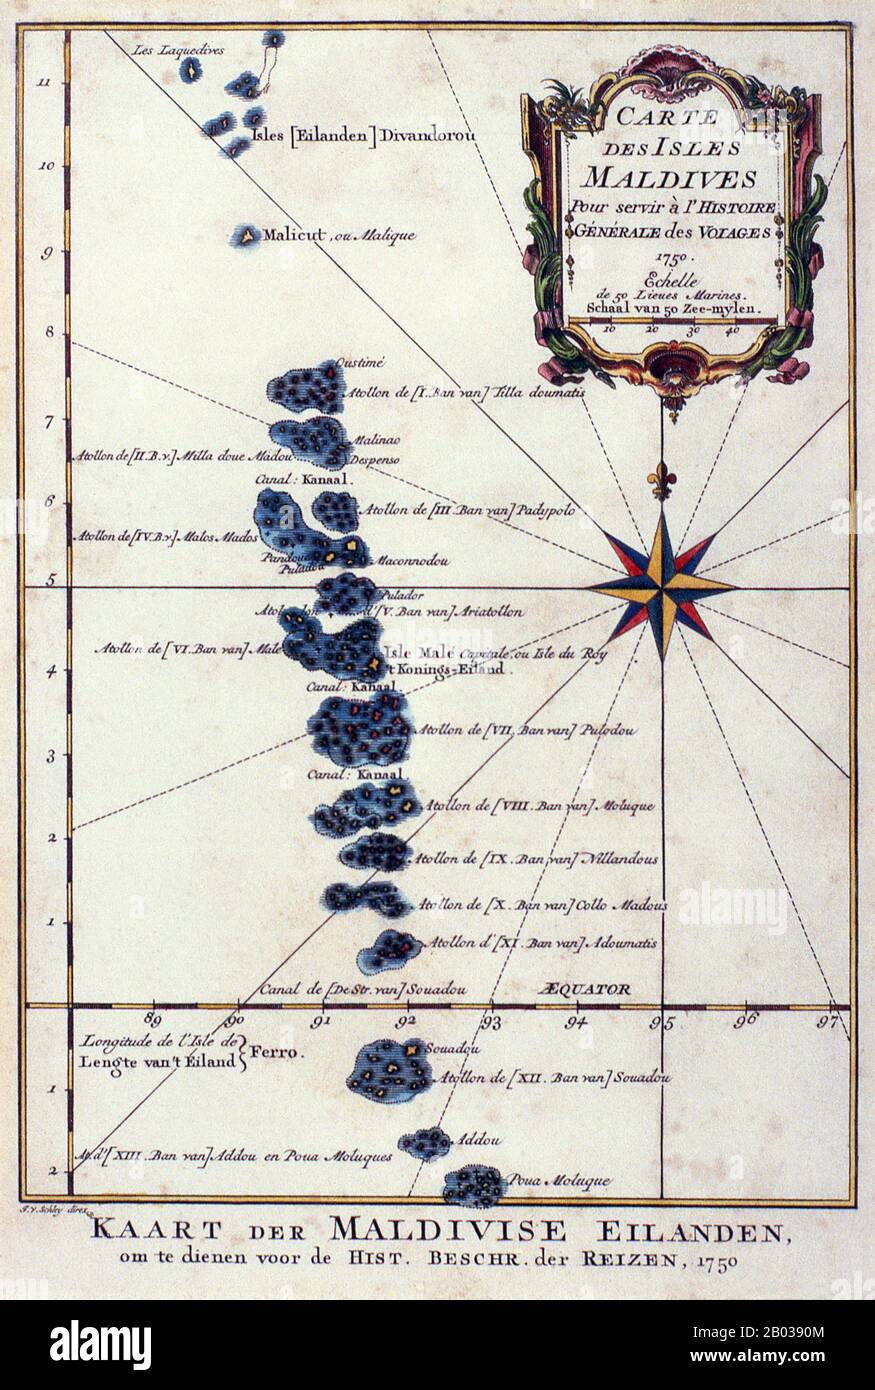 Les Laquedives
11
Isles [Eilanden] Divandorou
10
Malicut, ou Malique
9
8
CARTE
DES ISLES
MALDIVES
Pour servir à l'HISTOIRE
GÉNÉRALE des VOIAGES
1750.
Echelle
de 50 Lieues Marines.
Schaal van 50 Zee-mylen.
10 20 30 40
Oustimé
Atollon de [I. Ban van] Tilla doumatis
7
Malinao
Atollon de [II. B. v.] Milla doue Madou
Despenso
Canal: Kanaal.
6
Atollon de [III. Ban van] Padypolo
Atollon de [IV. B. v.] Malos Mados
Maconnodou
5
Pulador
d'[V. Ban van] Ariatollon
Atollon de [VI. Ban van] Male
Isle Malé Capitale, ou Isle du Roy
't Konings-Eiland.
4
Canal: Kanaal.
Atollon de [VII. Ban van] Pulodou
3
Canal: Kanaal.
Atollon de [VIII. Ban van] Moluque
2
Atollon de [IX. Ban van] Nillandous
Atollon de [X. Ban van] Collo Madous
1
Atollon d'[XI. Ban van] Adoumatis
Canal de [De Str. van] Souadou
ÆQUATOR
89 90 91 92 93 94 95 96 97
Longitude de l'Isle de
Lengte van't Eiland
Ferro.
Souadou
Atollon de [XII. Ban van] Souadou
1
Addou
At. d'[XIII. Ban van] Addou en Poua Moluques
2
Poua Moluque
J. v. Schley direx.
KAART DER MALDIVISE EILANDEN,
om te dienen voor de HIST. BESCHR. der REIZEN, 1750
alamy
alamy
Image ID: 2B0390M
www.alamy.com